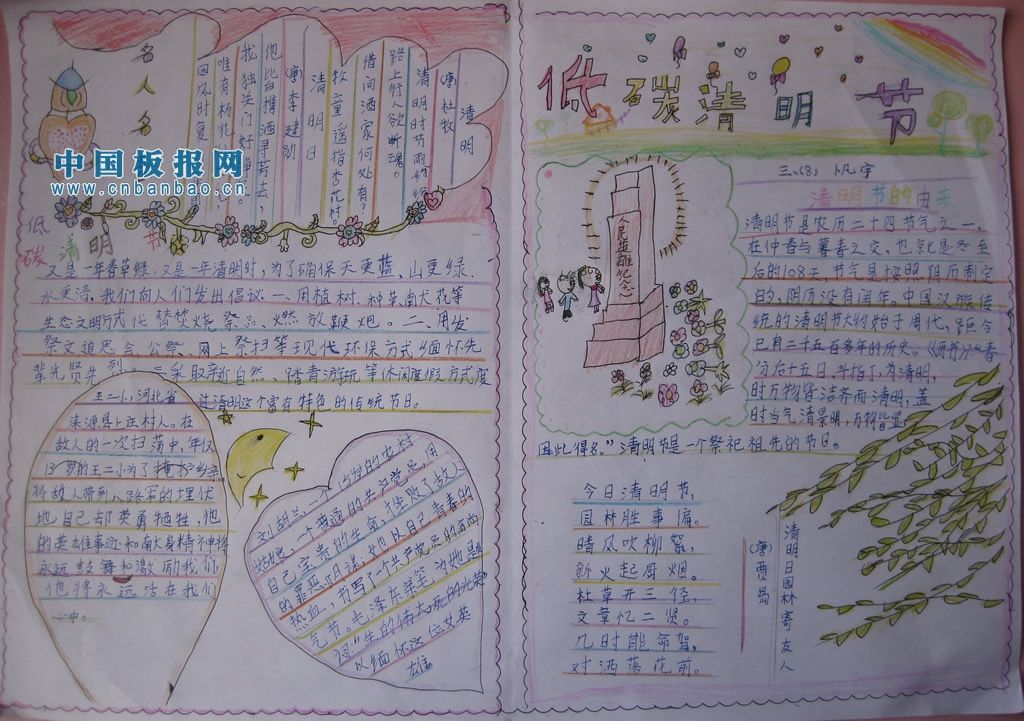 名人名
清明
(唐)杜牧
清明时节雨纷纷,
路上行人欲断魂。
借问酒家何处有,
牧童遥指杏花村
清明日
(唐)李建勋
他皆携酒寻芳去,
我独关门好静
唯有杨花
因风时复
中国板报网
www.cnbanbao.cn
低碳清明节
又是一年春草绿,又是一年清明时,为了确保天更蓝、山更绿、
水更清,我们向人们发出倡议:一、用植树、种草、南犬花等
生态文明方式代替焚烧祭品、燃放鞭炮。二、用发
祭文追思会、公祭、网上祭扫等现代环保方式缅怀先
辈先贤先烈。三采取亲近自然、踏青游玩等休闲度假方式度
过清明这个富有特色的传统节日。
王二小,河北省
涞源县上庄村人。在
敌人的一次扫荡中,年仅
13岁的王二小为了掩护乡亲,
将敌人带到八路军的埋伏
地自己却英勇牺牲,他
的英雄事迹和南大身精神将
永远鼓舞和激励我们,
他将永远活在我们
心中。
刘胡兰,一个15岁的农村
姑娘,一个普通的共产党员,用
自己宝贵的生命,挫败了敌人
的罪恶阴谋,她以自己青春的
热血,书写了一个共产党员的高尚
气节。毛泽东亲笔为她题
词:“生的伟大,死的光荣
以缅怀这位女英
雄
低碳清明节
三、(8) 卜凡宇
清明节的由来
人民英雄纪念
清明节是农历二十四节气之一,
在仲春与暮春之交,也就是冬至
后的108天。节气是按照阳历制定
的,阴历没有闰年。中国汉族传
统的清明节大约始于周代,距今
已有二千五百多年的历史。《历书》:“春
分后十五日,斗指丁,为清明,
时万物皆洁齐而清明,盖
时当气清景明,万物皆显,
因此得名。”清明节是一个祭祀祖先的节日。
今日清明节,
园林胜事偏。
晴风吹柳絮,
新火起厨烟。
杜草开三径,
文章忆二贤。
几时能命驾,
对酒落花前。
(唐)贾岛
清明日园林寄友人